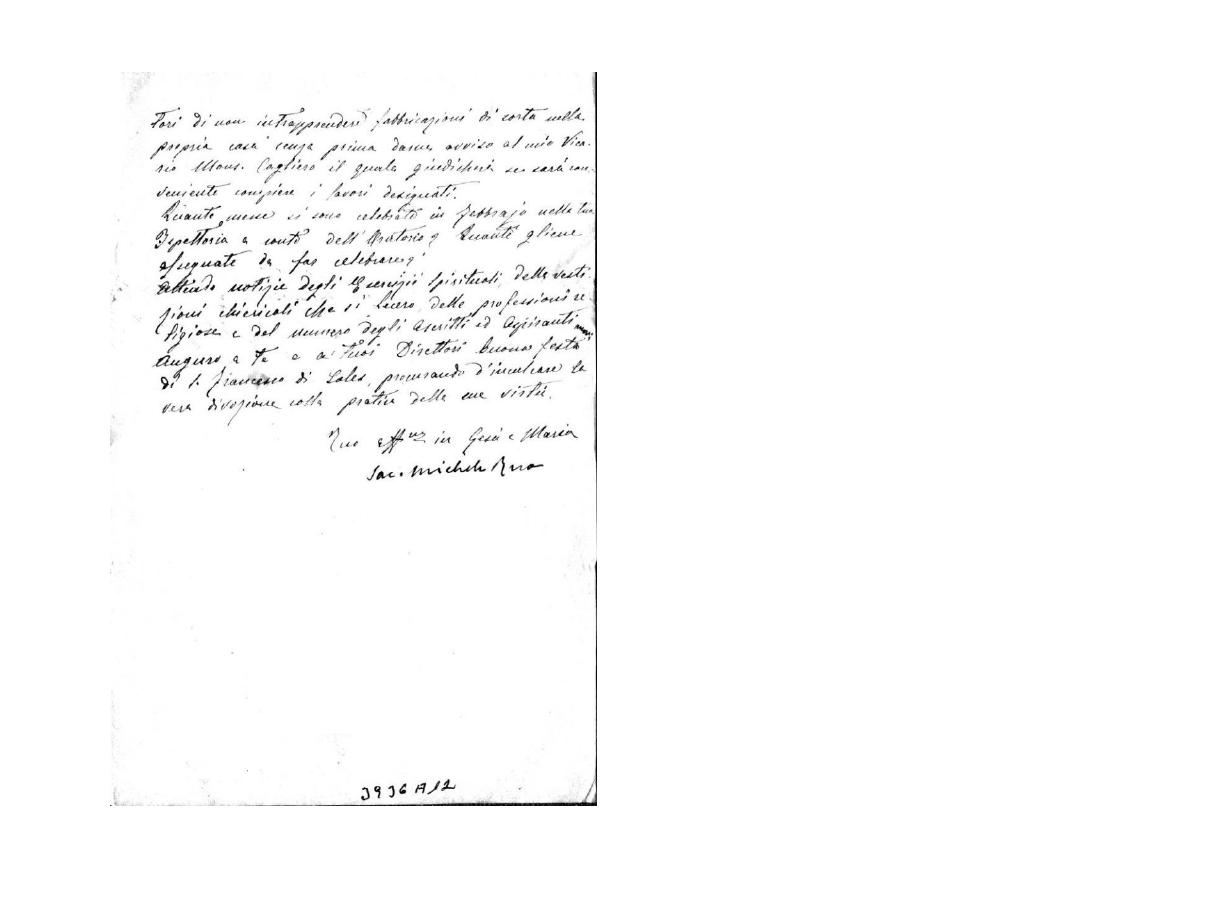 tori di non intrapprendere fabbricazioni di sorta nella
propria casa senza prima darne avviso al mio Vica-
rio Mons. Cagliero il quale giudicherà se sarà con-
veniente compiere i lavori designati.
Quante messe si sono celebrate in febbrajo nella tua
Ispettoria a conto dell'Oratorio? Quante gliene
assegnate da far celebrare?
Attendo notizie degli Esercizii Spirituali, delle vesti-
zioni chiericali che si fecero, delle professioni re-
ligiose e del numero degli Ascritti ed Aspiranti
Auguro a te e a' tuoi Direttori buona festa
di S. Francesco di Sales, procurando d'inculcare la
vera divozione colla pratica delle sue virtù.
Tuo aff.mo in Gesù e Maria
Sac. Michele Rua
3936 A12